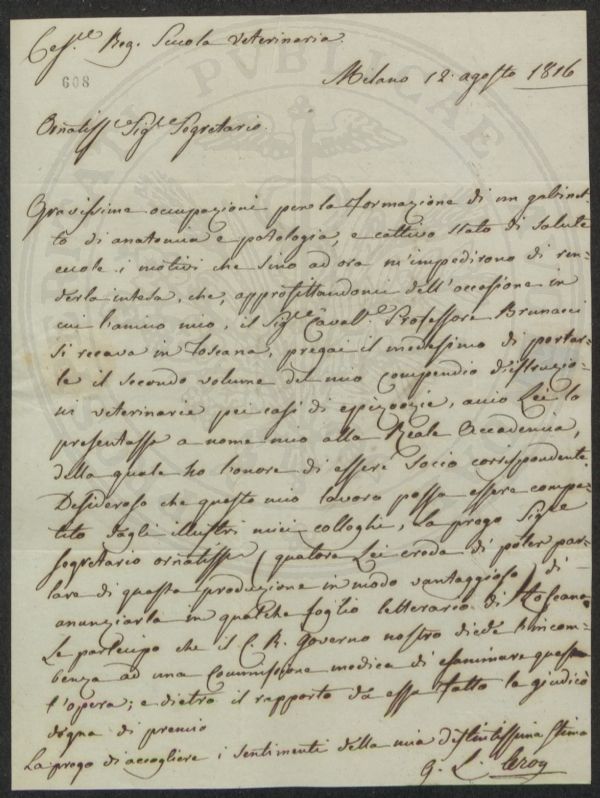 Ces.e Reg. Scuola Veterinaria.
608
Milano 12. agosto 1816
Ornatiss.e Sig.e Segretario.
Gravissime occupazioni per la formazione di un gabinet-
to di anatomia e patologia, e cattivo stato di salute
eccole i motivi che sino ad ora m'impedirono di ren-
derla intesa, che, approfittandomi dell'occasione in
cui l'amico mio, il Sig.e Cavall.e Professore Brunacci
si recava in Toscana, pregai il medesimo di portar-
le il secondo volume del mio compendio d'istruzio-
ni veterinarie pei casi di epizoozie, acciò Lei lo
presentasse a nome mio alla Reale Accademia,
della quale ho l'onore di essere socio corrispondente.
Desideroso che questo mio lavoro possa essere compa-
tito dagli illustri miei colleghi, la prego Sig.re
Segretario ornatiss.o (qualora Lei creda di poter par-
lare di questa produzione in modo vantaggioso) di
anunziarla in qualche foglio letterario di Toscana.
Le partecipo che il C. R. Governo nostro diede l'incom-
benza ad una Commissione medica di esaminare quest'
opera; e dietro il rapporto da essa fatto la giudicò
degna di premio
La prego di accogliere i sentimenti della mia distintissima stima
G. L. Leroy
SPVBLICAE